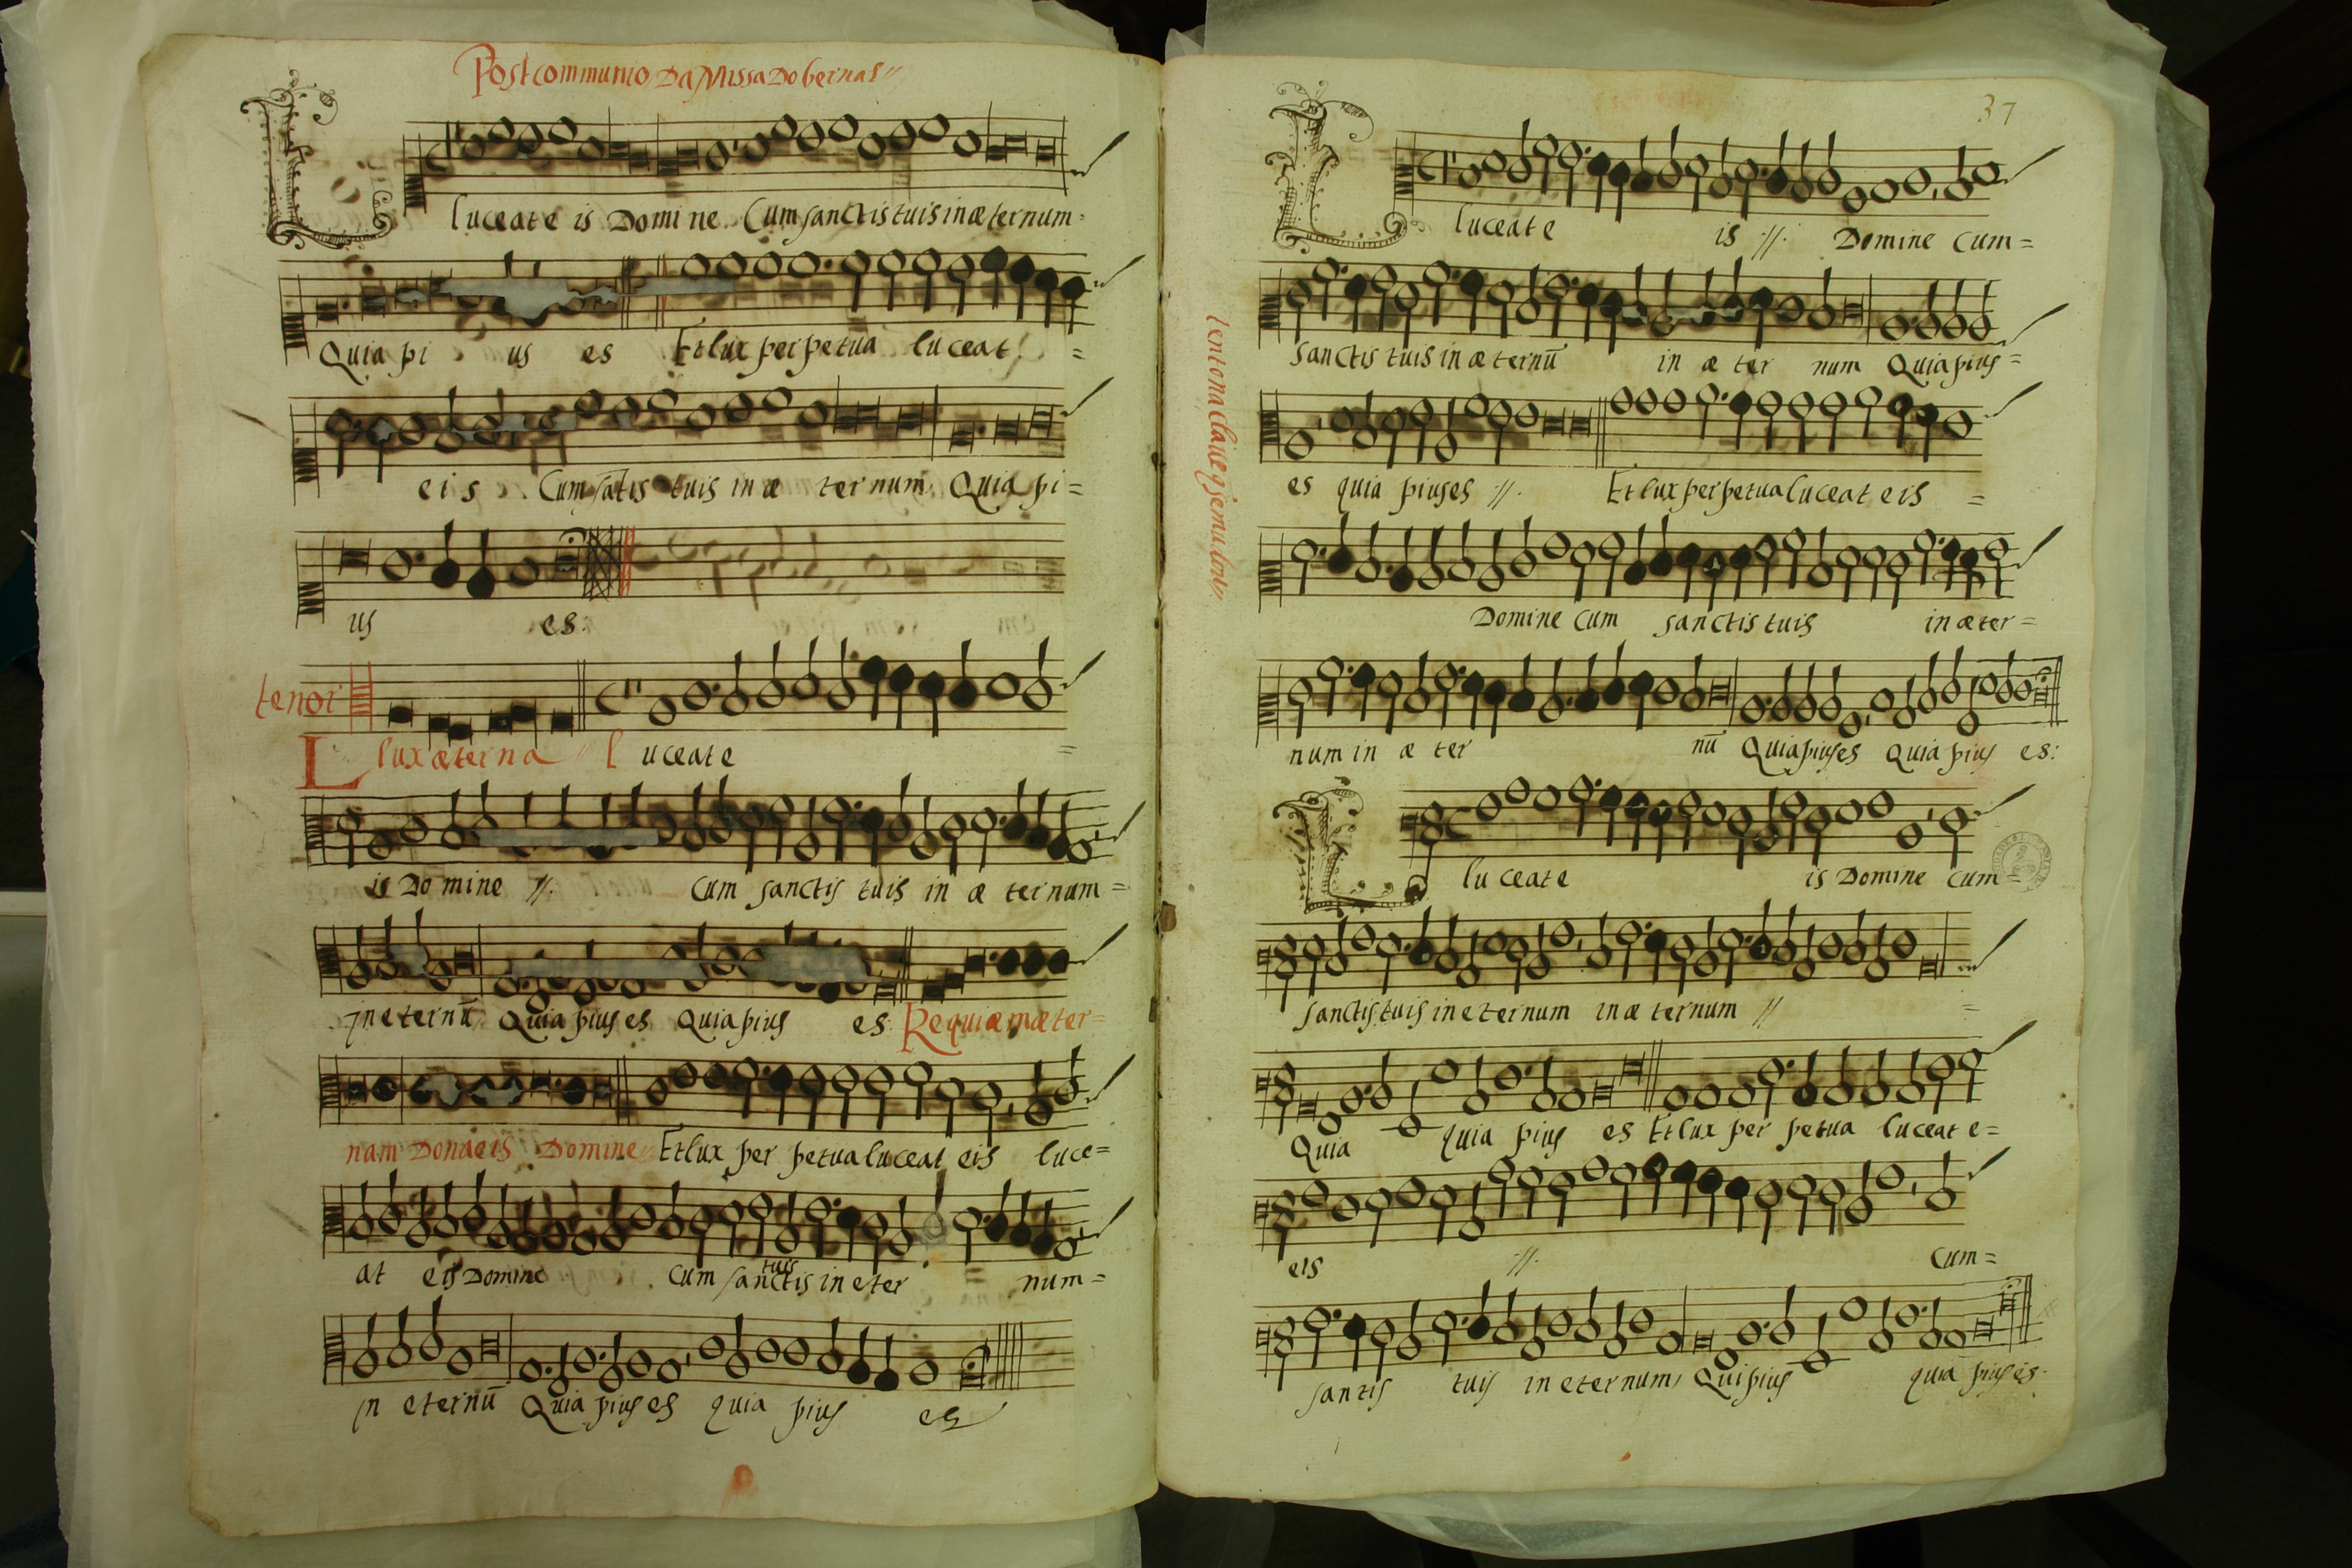 Postcommunio Da Missa Do bernas
L
luceat e is Domine Cum sanctis tuis in æternum
Quia pi us es Et lux perpetua luceat
eis Cum sātis tuis in æ ternum Quia pi
us es:
tenor
Lux æterna luceat e
is Domine //. Cum sanctis tuis in æ ternum
in eternū Quia pius es Quia pius es: Requiæm æter
nam Dona eis Domine Et lux per petua luceat eis luce
at eis Domine Cum sanctis tuis in eter num
in eternū Quia pius es quia pius es
37
L
luceat e is //. Domine Cum
sanctis tuis in æ ternū in æ ter num Quia pius
es quia pius es //. Et lux perpetua luceat eis
Domine Cum sanctis tuis in æter
num in æ ter nū Quia pius es Quia pius es:
L
luceat e is Domine Cum
sanctis tuis in eternum in æ ternum //
Quia quia pius es Et lux per petua luceat e
eis //. Cum
santis tuis in eternum Qui pius quia pius es.